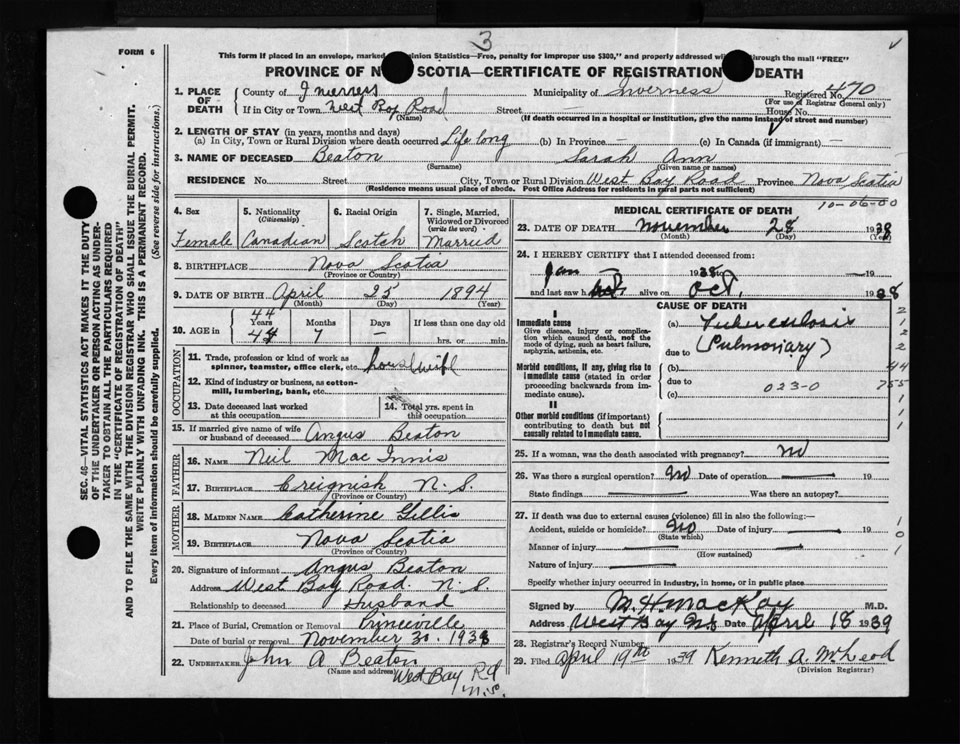 FORM 6
3
This form if placed in an envelope, marked "Dominion Statistics—Free, penalty for improper use $300," and properly addressed will pass through the mail "FREE"
PROVINCE OF N SCOTIA—CERTIFICATE OF REGISTRATION DEATH
1. PLACE OF DEATH
County of Inverness Municipality of Inverness Registered No. 470
(For use of Registrar General only)
If in City or Town West Bay Road Street House No.
(Name) (If death occurred in a hospital or institution, give the name instead of street and number)
2. LENGTH OF STAY (in years, months and days)
(a) In City, Town or Rural Division where death occurred Life long (b) In Province — (c) In Canada (if immigrant) —
3. NAME OF DECEASED Beaton Sarah Ann
(Surname) (Given name or names)
RESIDENCE No. Street City, Town or Rural Division West Bay Road Province Nova Scotia
(Residence means usual place of abode. Post Office Address for residents in rural parts not sufficient)
SEC. 46—VITAL STATISTICS ACT MAKES IT THE DUTY
OF THE UNDERTAKER OR PERSON ACTING AS UNDER-
TAKER TO OBTAIN ALL THE PARTICULARS REQUIRED
IN THE "CERTIFICATE OF REGISTRATION OF DEATH"
AND TO FILE THE SAME WITH THE DIVISION REGISTRAR WHO SHALL ISSUE THE BURIAL PERMIT.
WRITE PLAINLY WITH UNFADING INK. THIS IS A PERMANENT RECORD.
Every item of information should be carefully supplied. (See reverse side for instructions.)
4. Sex 5. Nationality 6. Racial Origin 7. Single, Married,
(Citizenship) Widowed or Divorced
(write the word)
Female Canadian Scotch Married
8. BIRTHPLACE Nova Scotia
(Province or Country)
9. DATE OF BIRTH April 25 1894
(Month) (Day) (Year)
44
10. AGE in Years Months Days If less than one day old
44 7 — hrs. or min.
OCCUPATION
11. Trade, profession or kind of work as
spinner, teamster, office clerk, etc. housewife
12. Kind of industry or business, as cotton-
mill, lumbering, bank, etc.
13. Date deceased last worked
at this occupation
14. Total yrs. spent in
this occupation
15. If married give name of wife
or husband of deceased Angus Beaton
FATHER
16. NAME Neil Mac Innis
17. BIRTHPLACE Creignish N. S.
(Province or Country)
MOTHER
18. MAIDEN NAME Catherine Gillis
19. BIRTHPLACE Nova Scotia
(Province or Country)
20. Signature of informant Angus Beaton
Address West Bay Road. N. S.
Relationship to deceased Husband
21. Place of Burial, Cremation or Removal Princeville
Date of burial or removal November 30. 1938
22. UNDERTAKER John A Beaton
(Name and address) West Bay Rd
MEDICAL CERTIFICATE OF DEATH 10-06-00
23. DATE OF DEATH November 28 1938
(Month) (Day) (Year)
24. I HEREBY CERTIFY that I attended deceased from:
Jan 1938 19
and last saw h alive on Oct. 1938
CAUSE OF DEATH
I
Immediate cause
Give disease, injury or complica-
tion which caused death, not the
mode of dying, such as heart failure,
asphyxia, asthenia, etc.
(a) Tuberculosis
due to (Pulmonary)
Morbid conditions, if any, giving rise to
immediate cause (stated in order
proceeding backwards from im-
mediate cause).
(b)
due to 023-0
(c)
II
Other morbid conditions (if important)
contributing to death but not
causally related to immediate cause.
2
1
2
2
44
755
1
1
1
25. If a woman, was the death associated with pregnancy? No
26. Was there a surgical operation? No Date of operation 19
State findings Was there an autopsy?
27. If death was due to external causes (violence) fill in also the following:—
Accident, suicide or homicide? No Date of injury 19
(State which)
Manner of injury
(How sustained)
Nature of injury
1
0
1
Specify whether injury occurred in industry, in home, or in public place
Signed by M. H. MacKay M.D.
Address West Bay NS Date April 18 1939
28. Registrar's Record Number
29. Filed April 19th 1939 Kenneth A. McLeod
(Division Registrar)